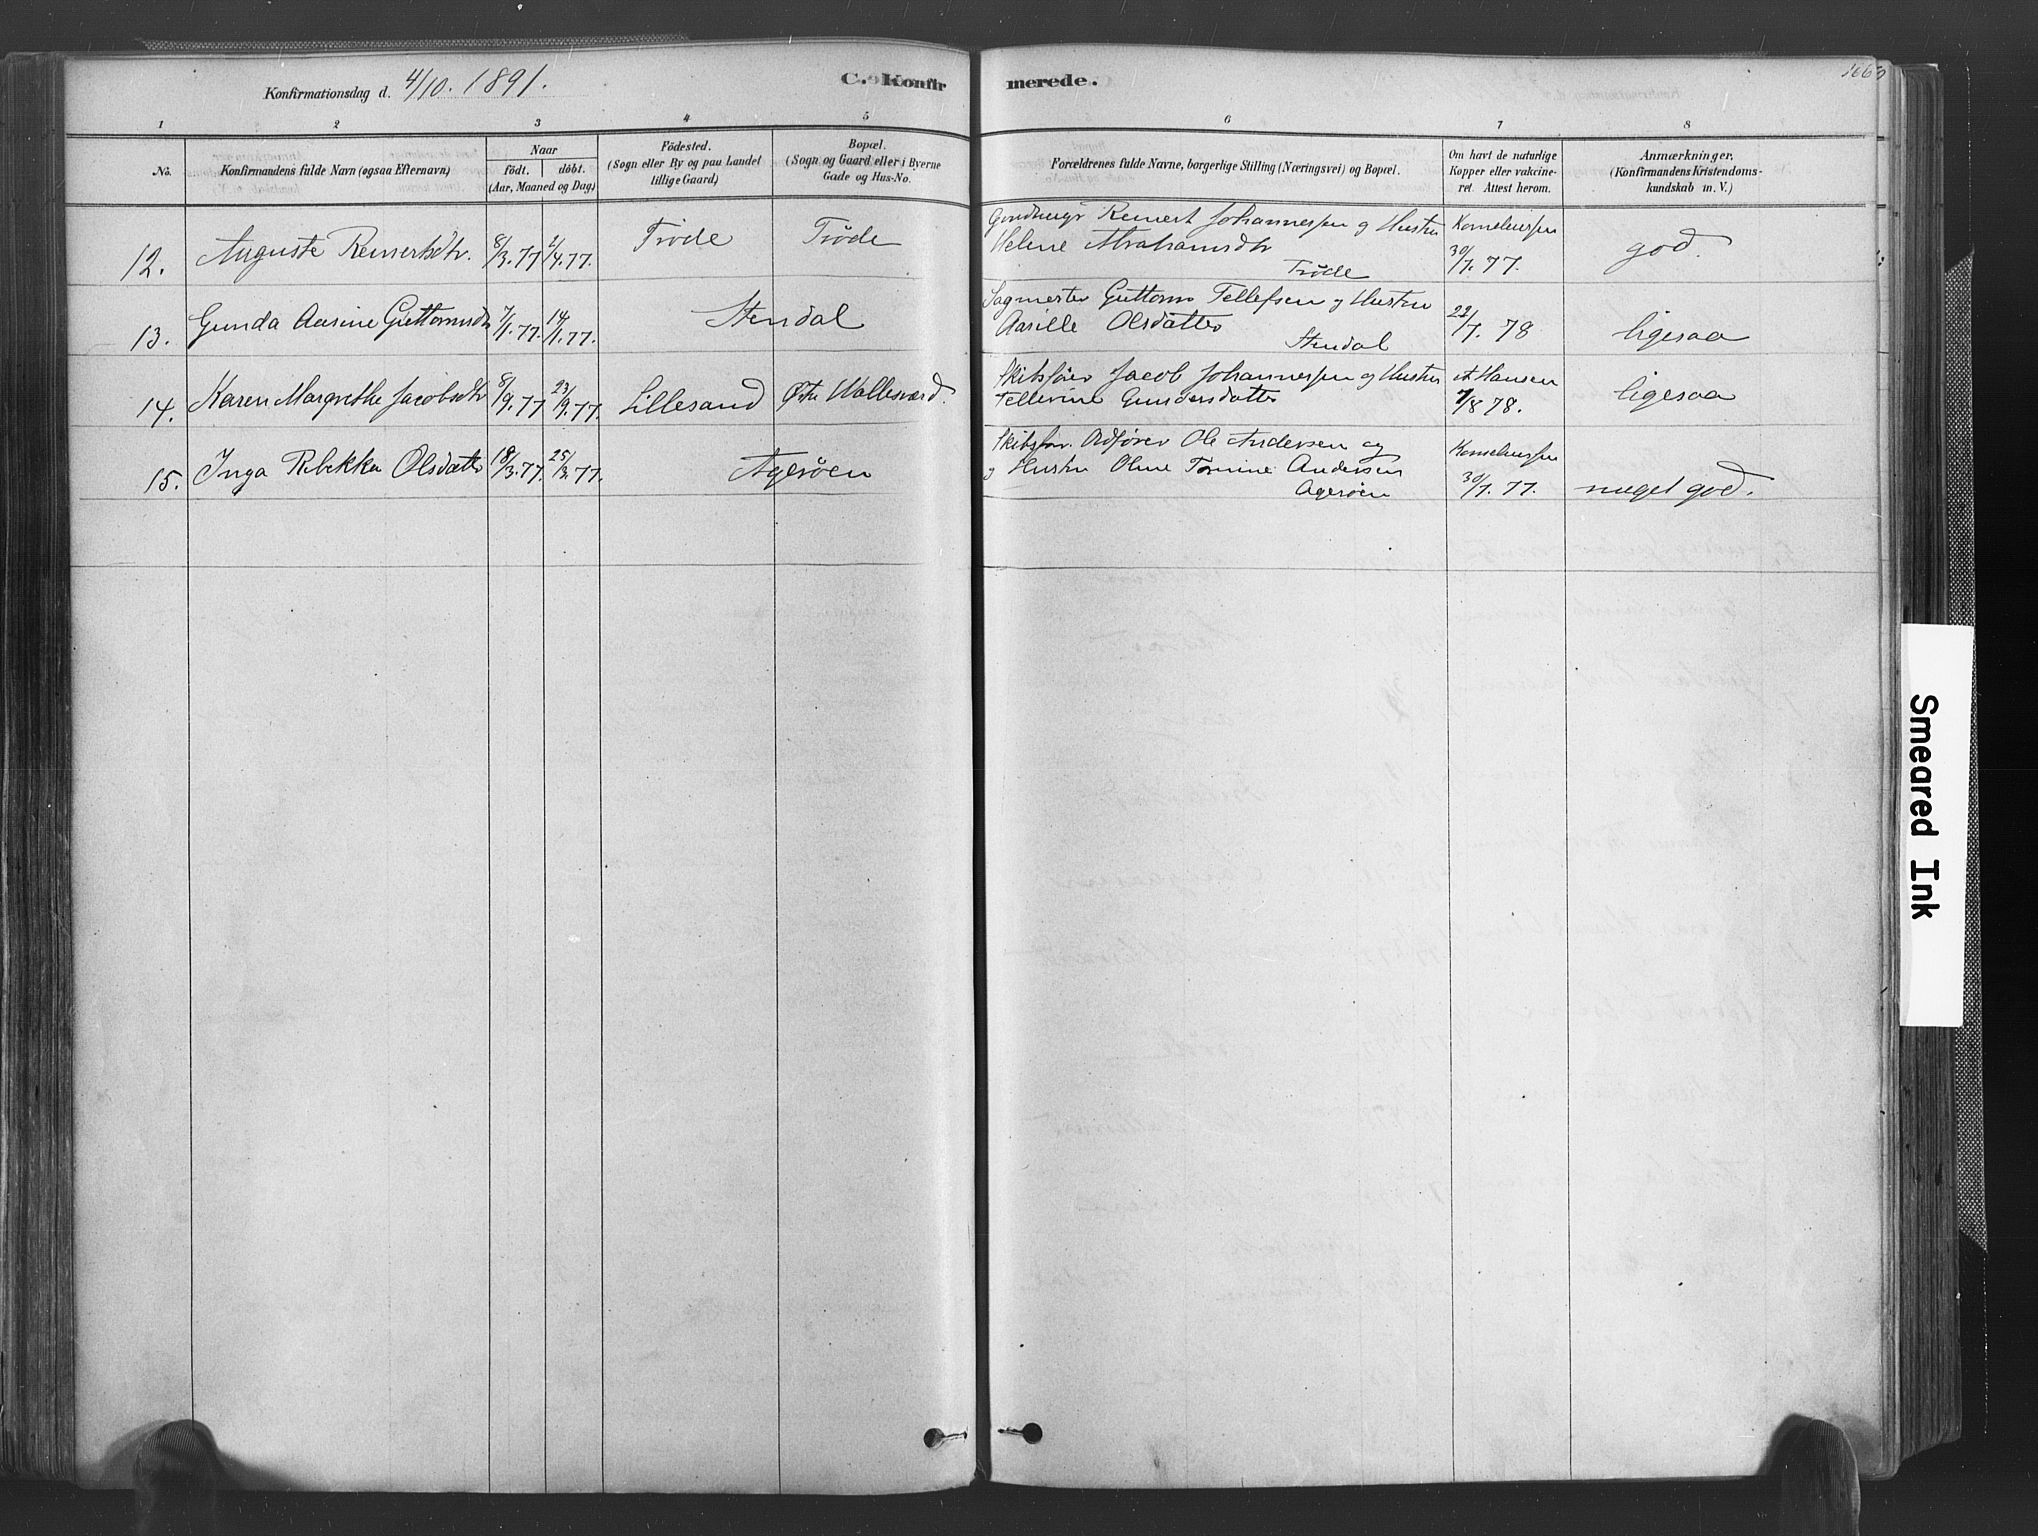 Konfirmationsdag d. 4/10. 1891.
C. Konfir
merede.
1 2 3 4 5 6 7 8
No.
Konfirmandens fulde Navn (ogsaa Efternavn)
Naar
födt. döbt.
(Aar, Maaned og Dag)
Födested.
(Sogn eller By og paa Landet
tillige Gaard)
Bopæl.
(Sogn og Gaard eller i Byerne
Gade og Hus-No.
Forældrenes fulde Navne, borgerlige Stilling (Næringsvei) og Bopæl.
Om havt de naturlige
Kopper eller vakcine-
ret. Attest herom.
Anmærkninger.
(Konfirmandens Kristendoms-
kundskab m. V.)
12. Auguste Reinertsdtr. 8/3.77 2/4.77. Trøde Trøde
Reinert Johannessen og Hustru
Helene Abrahamsdtr
Trøde
Korneliussen
30/7. 77.
god.
13. Gunda Aasine Guttormsdtr 7/1.77. 14/1.77. Stendal
Sagmester Guttorm Tellefsen og Hustru
Aasille Olsdatter
Stendal
22/7. 78
ligesaa
14. Karen Margrethe Jacobsdtr 8/9.77 23/9.77. Lillesand Østre Vallesværd.
Skibsfører Jacob Johannessen og Hustru
Tellevine Gundersdatter
A Hansen
7/8 78.
ligesaa
15. Inga Rebekka Olsdatter 18/3.77. 25/3.77. Agerøen
Skibsfør. Ordfører Ole Andersen og
og Hustru Oline Tomine Andersen
Agerøen
Korneliussen
30/7. 77.
meget god.
Smeared Ink